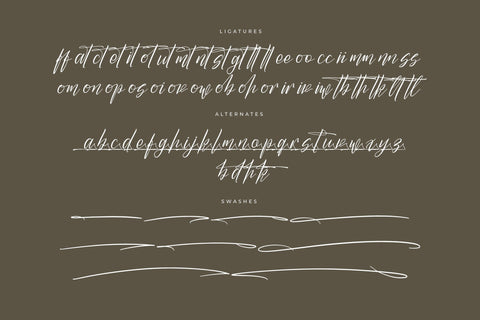 LIGATURES
ff at ct et it ot ut mt nt st gt tt ll ee oo cc ii mm nn ss
om on op os oi or ow ob ch or ir ir iw tb th tk lt tl
ALTERNATES
a b c d e f g h i j k l m n o p q r s t u r w x y z
b d h k
SWASHES